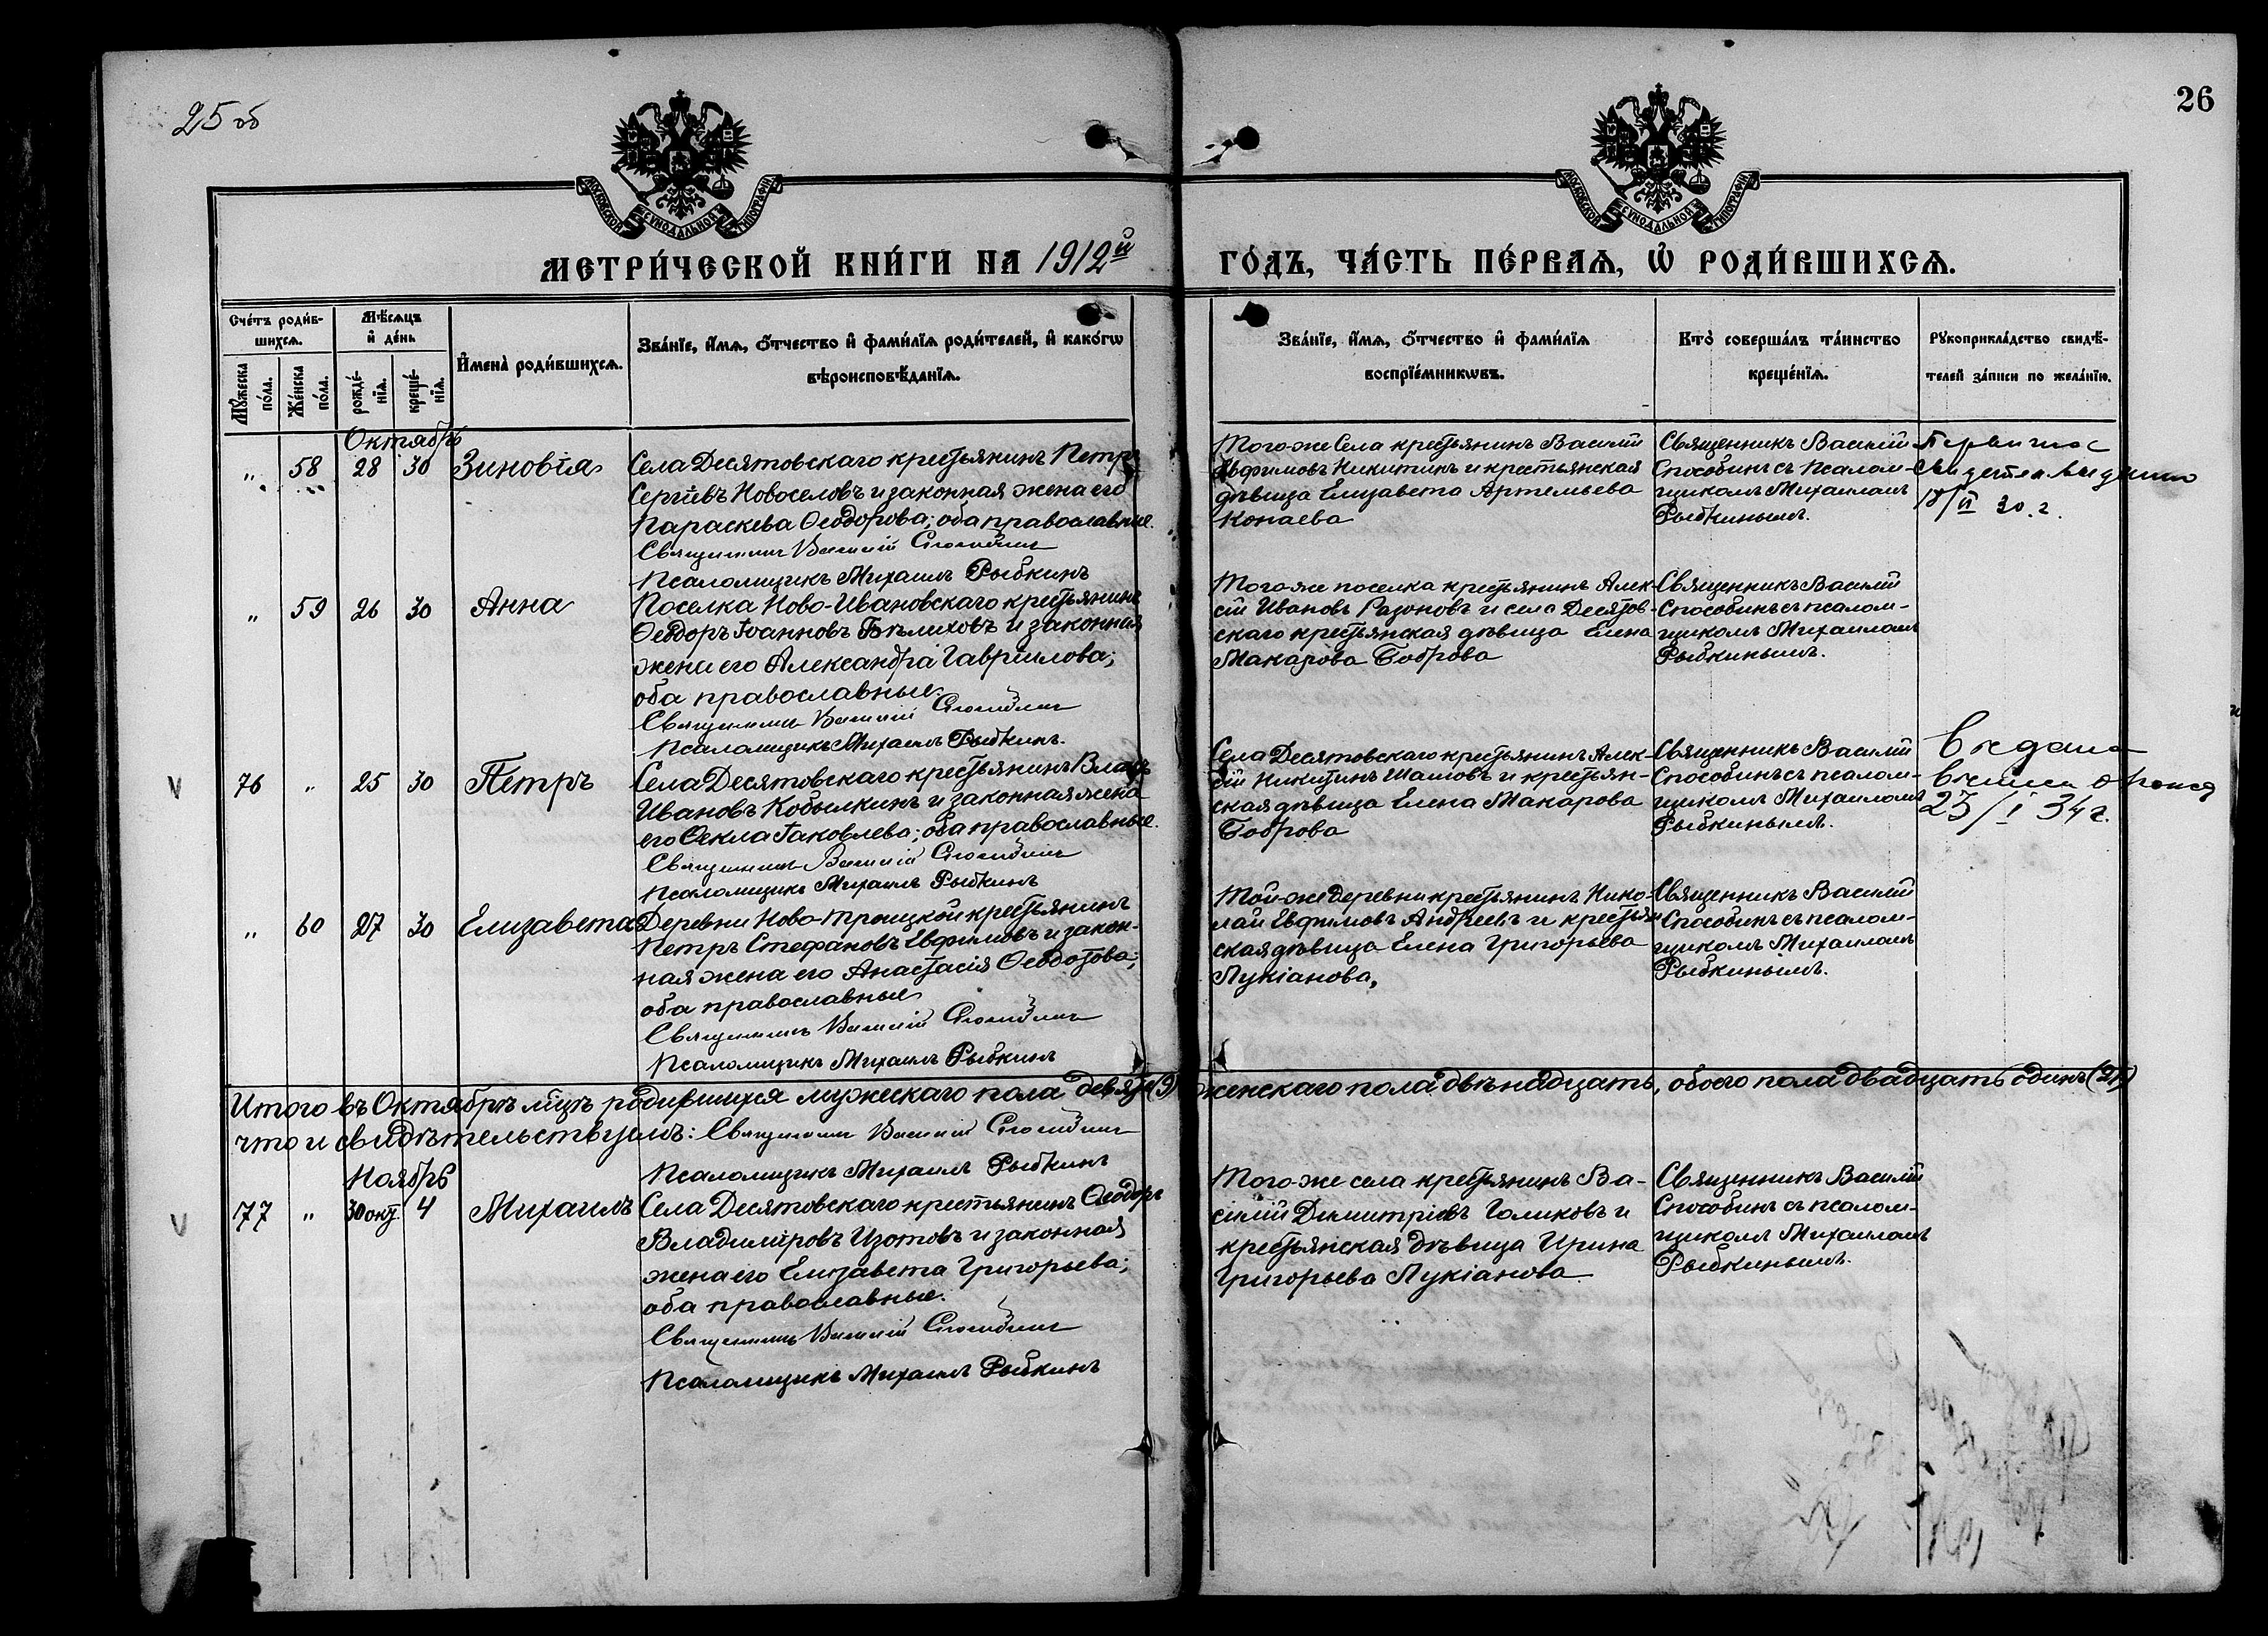 25 об
26
МОСКОВСКОЙ СѴНОДАЛЬНОЙ ТИПОГРАФІИ
МОСКОВСКОЙ СѴНОДАЛЬНОЙ ТИПОГРАФІИ
МЕТРИ́ЧЕСКОЙ КНИ́ГИ НА 1912й ГО́ДЪ, ЧА́СТЬ ПЕ́РВАѦ, Ѡ҆ РОДИ́ВШИХСѦ.
Сче́тъ роди́в-
шихсѧ.
Мꙋ́жеска по́ла.
Же́нска по́ла.
Мѣ́сѧцъ
и҆ де́нь
рожде́-
нїѧ.
креще́-
нїѧ.
И҆мена̀ роди́вшихсѧ.
Зва́нїе, и҆́мѧ, ѻ҆́тчество и҆ фами́лїѧ роди́телей, и҆ како́гѡ
вѣроисповѣ́данїѧ.
Зва́нїе, и҆́мѧ, ѻ҆́тчество и҆ фами́лїѧ
воспрїе́мникѡвъ.
Кто̀ соверша́лъ та́инство
креще́нїѧ.
Рꙋкоприкла́дство свидѣ́-
телей за́писи по жела́нїю.
Октябрь
„ 58 28 30 Зиновія
Села Десятовскаго крестьянинъ Петръ
Сергѣевъ Новоселовъ и законная жена его
Параскева Ѳеодорова; оба православные.
Священникъ Василій Способинъ
Псаломщикъ Михаилъ Рыбкинъ
Того-же Села крестьянинъ Василій
Евфимовъ Никитинъ и крестьянская
дѣвица Елизавета Артемьева
Конаева
Священникъ Василій
Способинъ съ псалом-
щикомъ Михаиломъ
Рыбкинымъ.
30. г.
„ 59 26 30 Анна
Поселка Ново-Ивановскаго крестьянинъ
Ѳеодоръ Іоанновъ Бѣлиховъ и законная
жена его Александра Гавріилова;
оба православные.
Священникъ Василій Способинъ
Псаломщикъ Михаилъ Рыбкинъ.
Того-же поселка крестьянинъ Алек-
сій Ивановъ Разоновъ и села Десятов-
скаго крестьянская дѣвица Елена
Макарова Боброва
Священникъ Василій
Способинъ съ псалом-
щикомъ Михаиломъ
Рыбкинымъ.
V 76 „ 25 30 Петръ
Села Десятовскаго крестьянинъ Власъ
Ивановъ Кобылкинъ и законная жена
его Ѳекла Іаковлева; оба православные.
Священникъ Василій Способинъ
Псаломщикъ Михаилъ Рыбкинъ
Села Десятовскаго крестьянинъ Алек-
сій Никитинъ Шамовъ и крестьян-
ская дѣвица Елена Макарова
Боброва
Священникъ Василій
Способинъ съ псалом-
щикомъ Михаиломъ
Рыбкинымъ.
23/I 34 г.
„ 60 27 30 Елизавета
Деревни Ново-Троицкой крестьянинъ
Петръ Стефановъ Евфимовъ и закон-
ная жена его Анастасія Ѳеодотова;
оба православные
Священникъ Василій Способинъ
Псаломщикъ Михаилъ Рыбкинъ
Той-же деревни крестьянинъ Нико-
лай Евфимовъ Андреевъ и крестьян-
ская дѣвица Елена Григорьева
Лукіанова,
Священникъ Василій
Способинъ съ псалом-
щикомъ Михаиломъ
Рыбкинымъ.
Итого въ Октябрѣ мцѣ родившихся мужескаго пола девять (9) женскаго пола двѣнадцать, обоего пола двадцать одинъ (21)
что и свидѣтельствуемъ: Священникъ Василій Способинъ
Псаломщикъ Михаилъ Рыбкинъ
Ноябрь
V 77 „ 30 окт. 4 Михаилъ
Села Десятовскаго крестьянинъ Ѳеодоръ
Владиміровъ Изотовъ и законная
жена его Елизавета Григорьева;
оба православные.
Священникъ Василій Способинъ
Псаломщикъ Михаилъ Рыбкинъ
Того-же села крестьянинъ Ва-
силій Димитріевъ Голиковъ и
крестьянская дѣвица Ирина
Григорьева Лукіанова
Священникъ Василій
Способинъ съ псалом-
щикомъ Михаиломъ
Рыбкинымъ.